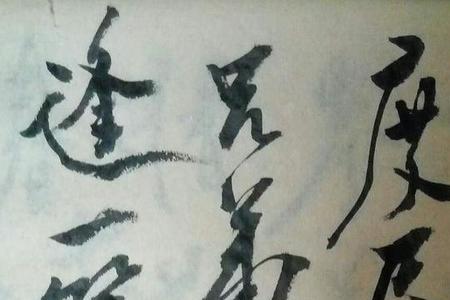 度尽
兄弟
逢一